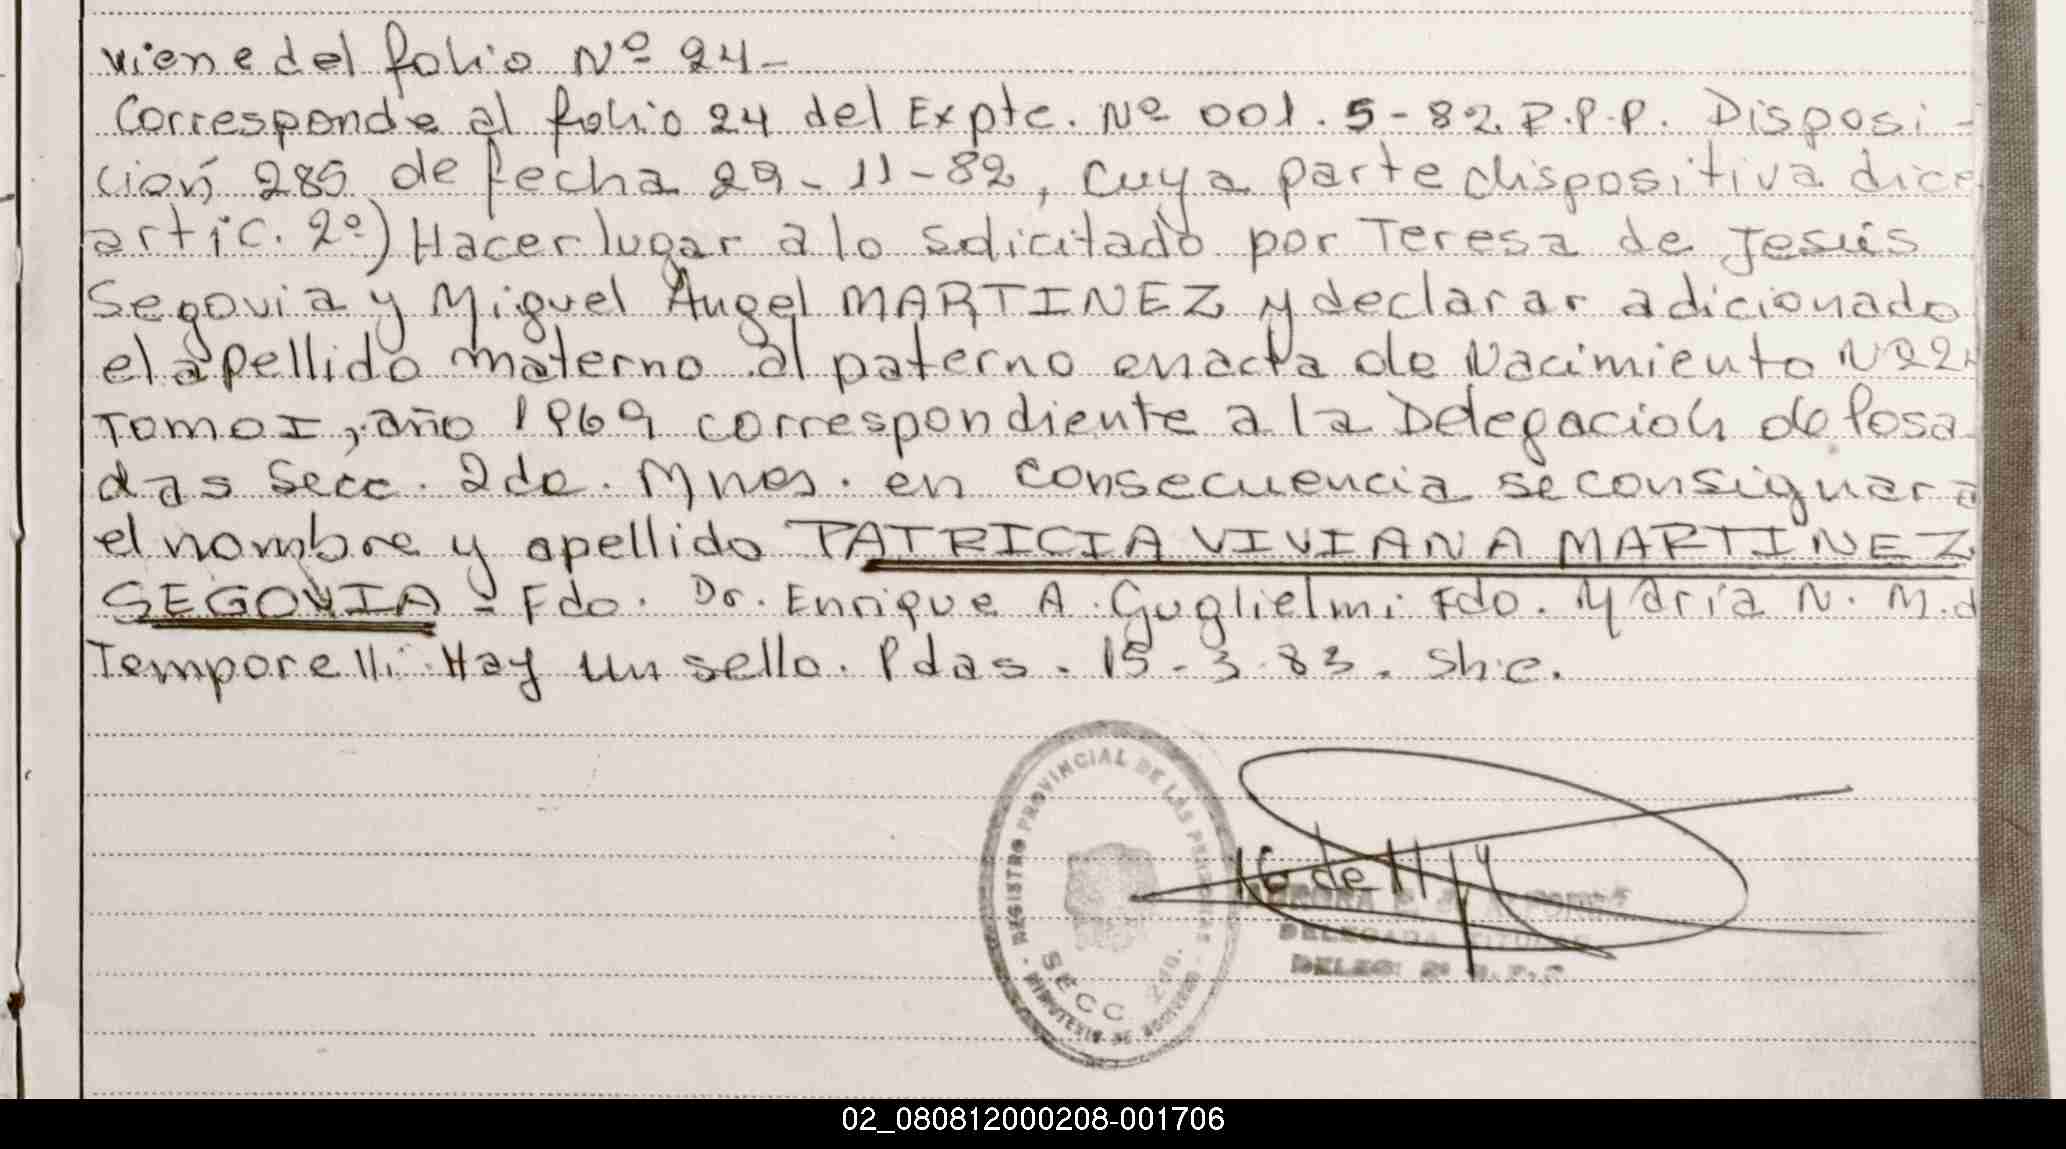 viene del folio Nº 24-
Corresponde al folio 24 del Expte. Nº 001.5-82.R.P.P. Disposi-
ción 285 de fecha 29-11-82, cuya parte dispositiva dice
artic. 2º) Hacer lugar a lo solicitado por Teresa de Jesús
Segovia y Miguel Ángel MARTINEZ y declarar adicionado
el apellido materno al paterno en acta de Nacimiento
Tomo I, año 1969 correspondiente a la Delegación de Posa
das Secc. 2da. Mnes. en consecuencia se consignara
el nombre y apellido PATRICIA VIVIANA MARTINEZ
SEGOVIA - Fdo. Dr. Enrique A. Guglielmi Fdo. María N. M. d
Temporelli. Hay un sello. Pdas. 15-3-83.
REGISTRO PROVINCIAL DE LAS PERSONAS
SECC 2da.
16 de
DELEGADA TITULAR
DELEG. 2ª R.P.P.
02_080812000208-001706